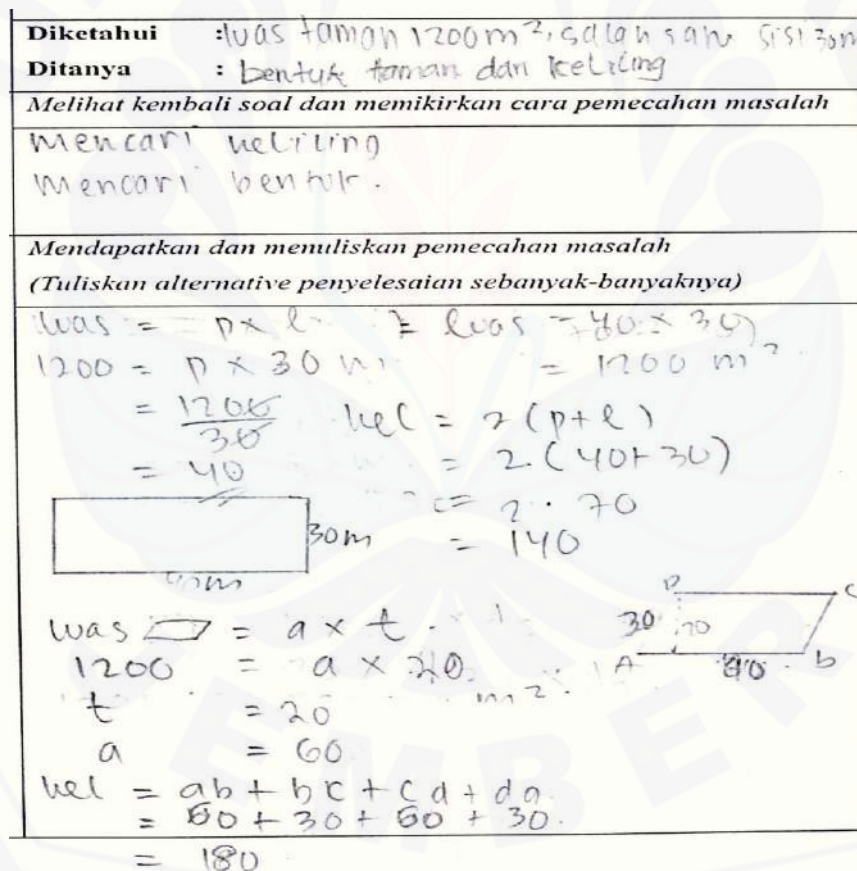 Diketahui : luas taman 1200 m², salah satu sisi 30 m
Ditanya : bentuk taman dan keliling
Melihat kembali soal dan memikirkan cara pemecahan masalah
mencari keliling
mencari bentuk.
Mendapatkan dan menuliskan pemecahan masalah
(Tuliskan alternative penyelesaian sebanyak-banyaknya)
luas = p x l = luas = 40 x 30
1200 = p x 30 = 1200 m²
= 1200/30 kel = 2 (p+l)
= 40 = 2. (40+30)
= 2 . 70
30m = 140
40m
D C
luas ▱ = a x t 30
1200 = a x 20 A b
t = 20
a = 60
kel = ab + bc + cd + da
= 60 + 30 + 60 + 30.
= 180
EMBER